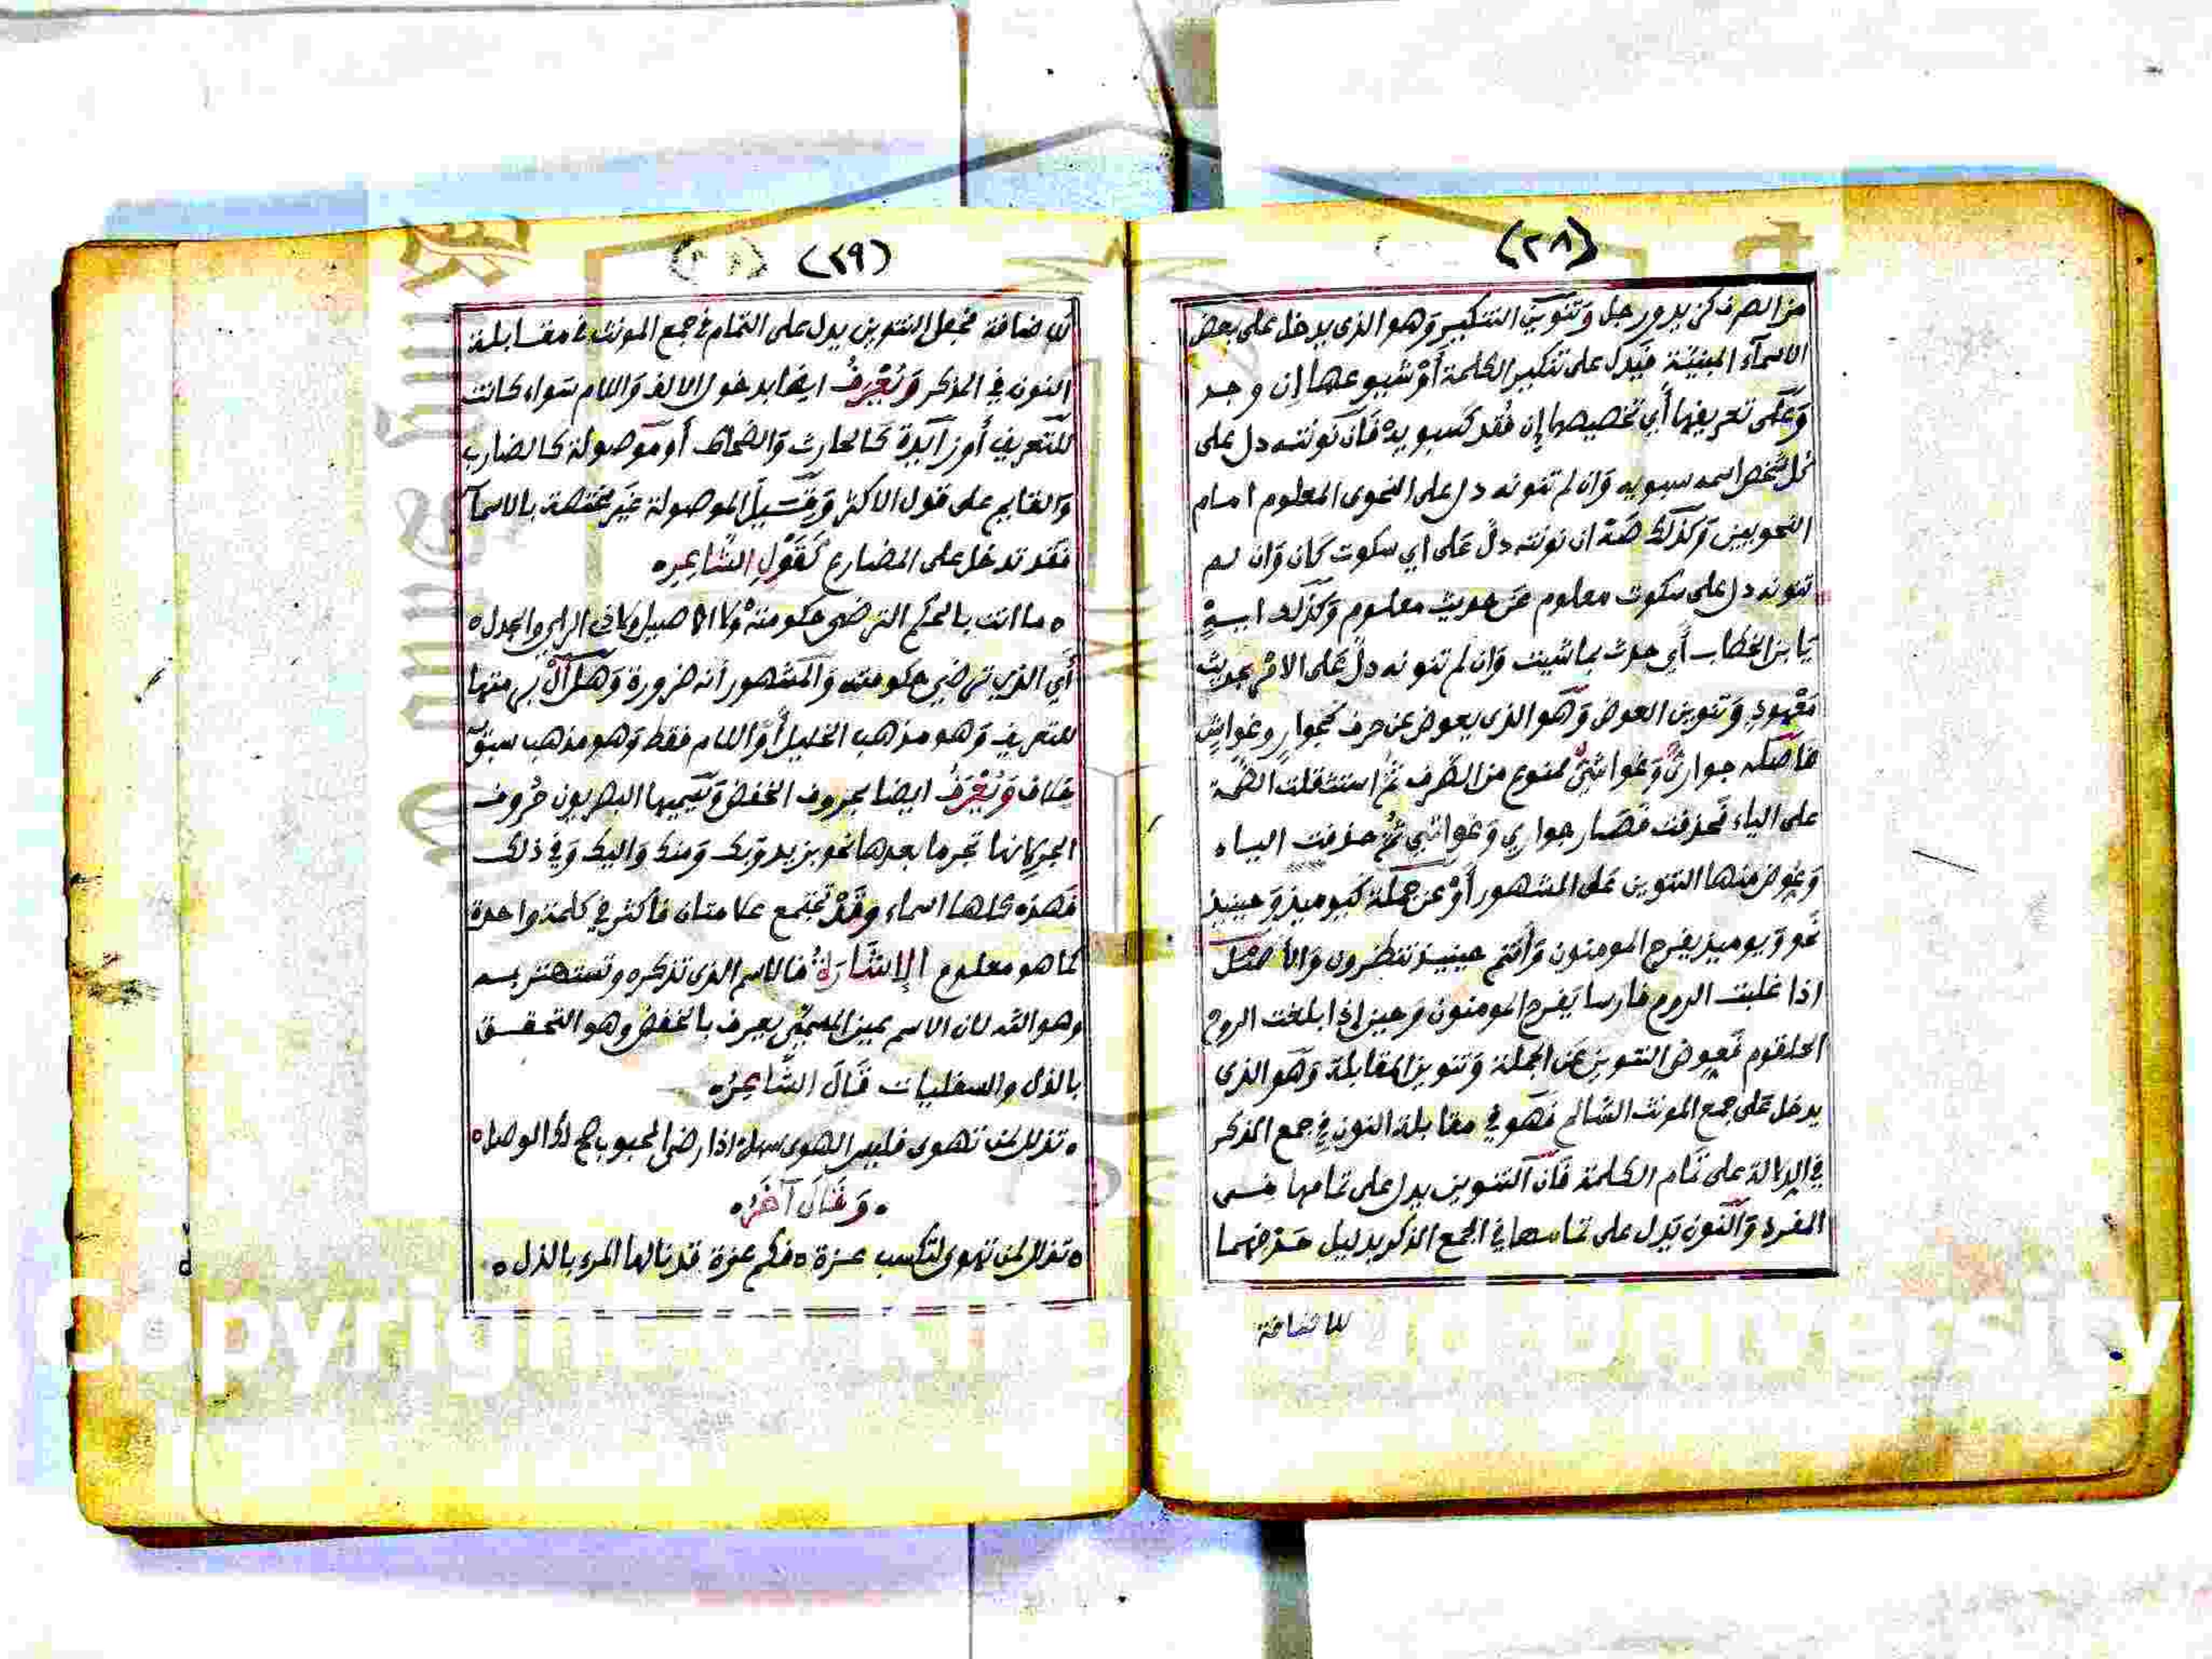 (٢٨)
من الصرف كزيد ورجل وَتنوين التنكير وَهو الذى يدخل على بعض
الاسمآء المبنيّة فيَدل على تنكير الكلمة أَوْ شيوعها إِن وجد
وَعَلى تعريفها أَي تخصيصها إِن فُقد كَسيبويه فَان نَونته دل على
كل شخص اسمه سيبويه وَان لم تنونه دل على النحوى المعلوم امام
النحويين وَكذلك صَه ان نونته دلّ عَلى أي سكوت كَان وَان لم
تنونه دل على سكوت معلوم عَن حديث معلوم وَكذلك ايهٍ
يَا بن الخطاب أَي حدث بما شيت وَان لم تنونه دلّ عَلى الامْر بحديث
مَعْهودٍ وَتنوين العوض وَهَو الذى يعوض عن حرف كَجوارٍ وغواشٍ
فاَصله جواريٌ وَغواشيٌ ممنوع من الصَّرف ثمَّ استثقلت الضّمة
على الياء فَحذفت فَصَار جواري وَغواشي ثمَّ حذفت الياء
وَعوض منها التنوين عَلى المشهور أَوْ عن جملة كَيوميذٍ وَحينيذ
نَحو وَيوميذ يفرح المومنون وَأَنتم حينيذ تنظرون وَالأَصْل
اذا غلبت الروم فارسا يَفرح المومنون وَحين اذا بلغت الروح
الحلقوم فَعوض التنوين عَن الجملة وَتنوين المقابلة وَهَو الذى
يدخل عَلى جمع المونث السَّالم فَهَو في مقابلة النون في جمع المذكر
في الدلالة على تَمام الكلمة فَان التنوين يدل على تمامها في
المفرد وَالنون تَدل على تمامها في الجمع المذكر بدليل حذفهما
للاضافة
(٢٩)
للاضافة فجعل التنوين يدل على التمام في جمع المونث في مقابلة
النون في المذكر وَيُعْرفُ ايضا بدخول الالف وَاللام سَواء كانت
للتَعريف أَو زآيدة كَالحارث وَالضحاك أَو موَصولة كالضارب
وَالقايم على قول الاكثر وَقيل الموصولة غَير مختصة بالاسمآ
فَقد تدخل على المضارع كَقَوْلِ الشَّاعِرِ ه
ه ما انت بالحكم الترضى حكومته ولا الاصيل ولا ذى الراي والجدل ه
أَي الذي ترضي حكومته وَالمشهور أَنه ضرورة وَهل أَلْ برمتها
للتعريف وَهو مذهب الخليل أَو اللام فقط وَهو مذهب سيبويه
خلاف وَيُعْرَفُ ايضا بحروف الخفض وَيسَميها البصريون حُروف
الجر لانها تجر ما بعدها نحو بزيد وَبك وَمنك وَاليك وَفي ذلك
فَهذه كلها اسماء وَقَدْ تجتمع علامتان فأكثر في كلمة واحدة
كما هو معلوم الإشَارَةُ فالاسم الذى تذكره وتستهتر به
وهو الله لان الاسم عين المسمّى يعرف بالخفض وهو التحقق
بالذل والسفليات قَالَ الشَّاعِرُ ه
ه تذلل لمن تهوى فليس الهوى سهل اذا رضى المحبوب صح لك الوصل ه
ه وَقَالَ آخَرُ ه
ه تذلل لمن تهوى لتكسب عزة ه فكم عزة قد نالها المرء بالذل ه
Copyright © King Saud University